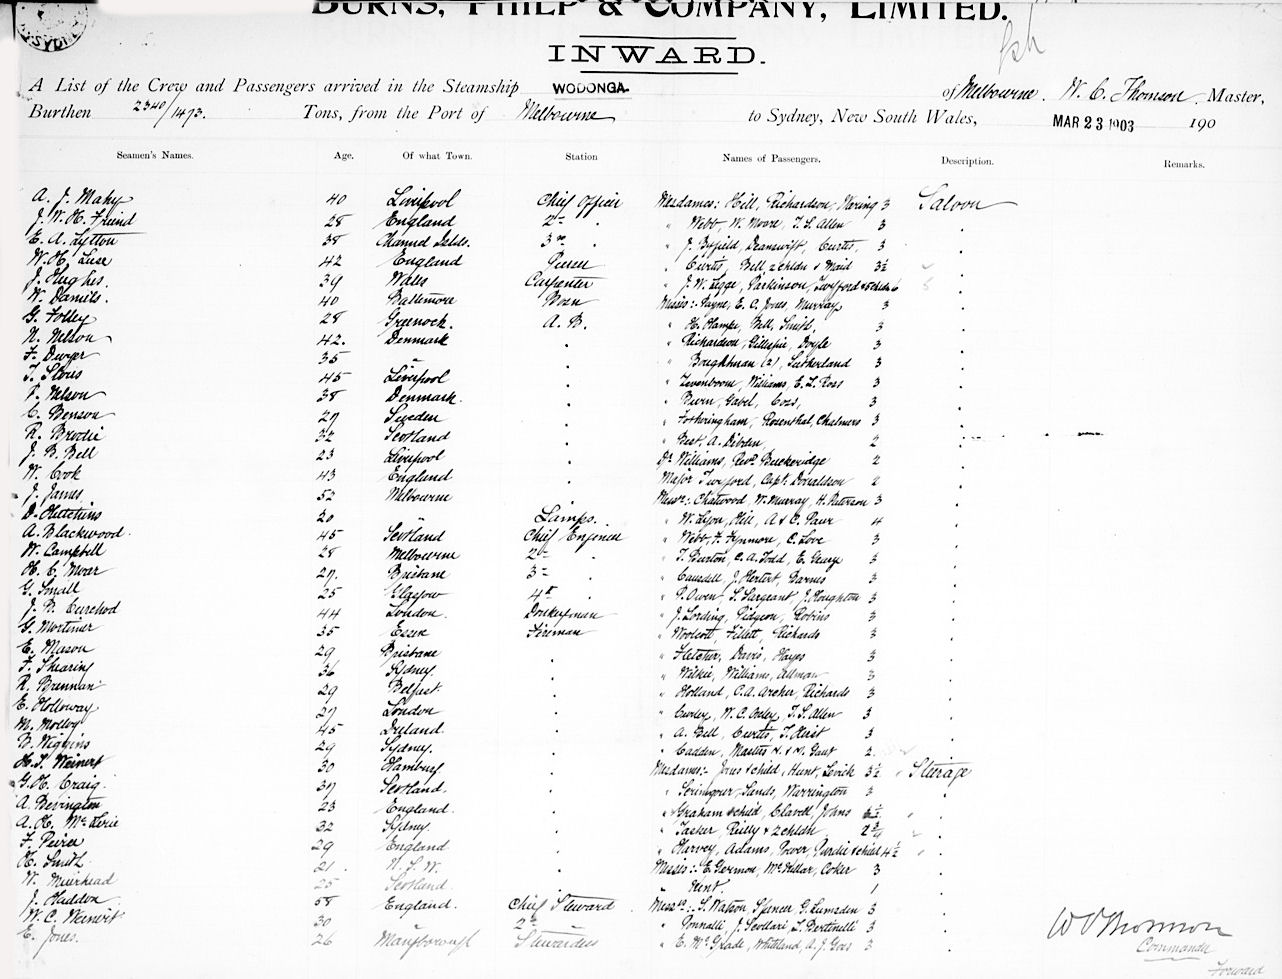 BURNS, PHILP & COMPANY, LIMITED.
INWARD.
A List of the Crew and Passengers arrived in the Steamship WODONGA of Melbourne. W. C. Thomson, Master,
Burthen 2340/1473. Tons, from the Port of Melbourne to Sydney, New South Wales, MAR 23 1903 190
Seamen's Names. Age. Of what Town. Station Names of Passengers. Description. Remarks.
A. J. Mahy 40 Liverpool Chief Officer Mesdames: Hill, Richardson, 3 Saloon
J. W. H. Friend 28 England 2nd " Webb, W. Moore, T. S. Allen 3
E. A. Lytton 38 Channel Islds. 3rd " J. Byfield, Deanswift, Curtis, 3
W. H. Luse 42 England Purser " Curtis, Bell, 2 chldn & Maid 3½
J. Hughes 39 Wales Carpenter " J. W. Legge, Parkinson, Twyford & 5 chldn 6
W. Daniels. 40 Baltimore Bosn Misses:- Payne, E. C. Jones, Murray 3
G. Folley 28 Greenock. A. B. " H. Hampe, Bell, Smith, 3
N. Nelson 42. Denmark " Richardson, Gillespie, Doyle 3
F. Dwyer 35 " " Boughtman (2), Sutherland 3
T. 45 Liverpool " Zevenboom, Williams, E. L. Ross 3
P. Nelson 38 Denmark. " Burn, Gabel, Coss, 3
C. Benson 27 Sweden " Fotheringham, Rosenthal, Chalmers 3
R. Brodie 32 Scotland " Best, A. Dibden, 2
J. B. Bell 23 Liverpool Dr Williams, Revd Buckeridge 2
W. Cook 43 England Major Twyford, Capt. Donaldson 2
J. James 52 Melbourne Messrs: Chatwood, W. Murray, H. Paterson 3
D. Hutchins 20 " Lamps. " W. Lyon, Hill, A & C. Paur 4
A. Blackwood. 45 Scotland Chief Engineer " Webb, F. Fynmore, C. Love 3
W. Campbell 28 Melbourne 2nd " T. Burton, C. A. Todd, E. George 3
H. C. Moar 27. Brisbane 3rd " Causdell, J. Hertert, Barnes 3
G. Small 25 Glasgow 4th " P. Owen, S. Sargeant, J. Houghton 3
J. B. Curchod 44 London. Donkeyman " J. Lording, Pidgeon, Robins 3
G. Mortimer 35 Essex Fireman " Woolcott, Fillett, Richards 3
E. Mason 29 Brisbane " Fletcher, Davis, Hayes 3
F. Shearing 36 Sydney. " Wilkie, Williams, Allman 3
R. Brennan 29 Belfast. " Holland, C. A. Archer, Richards 3
E. Holloway 27 London " Curley, W. C. Oxley, T. S. Allen 3
M. Molloy 45 Ireland. " A. Bell, Curtis, T. Hirst 3
B. Wiggins 29 Sydney. " Cadden, Masters 2.
H. T. Weinert 30 Hamburg Mesdames:- Jones & child, Hunt, Levick 3½ Steerage
G. H. Craig. 37 Scotland. " Scrimgour, Sands, Warrington 3
A. Bevington 23 England. " Graham & child, Clavell, Johns
A. H. McKerie 32 Sydney. " Tasker, Reilly & 2 chldn.
F. Peirce 29 England " Harvey, Adams, Power, Purdie & child 4½
H. Smith. 21. N. S. W. Misses:- E. Germon, McKellar, Coker 3
W. Muirhead 25 Scotland. " Kent. 1
J. Hadden 58 England. Chief Steward Messrs:- S. Watson, Spencer, G. Lumsden 3
W. C. Weinert 30 2nd " Ponnalli, J. Scollari, L. Bertinelli 3
E. Jones. 26 Maryborough Stewardess " E. McGrade, Whittland, A. J. Goes 3
W C Thomson
Commander
Forward